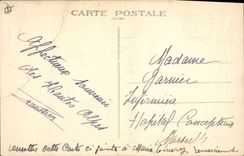 CARTE POSTALE
Affectueux souvenir
des Hautes Alpes
Madame
Garnier
Infirmière
Hopital Conception
Marseille
remettre cette Carte ci jointe à Marie